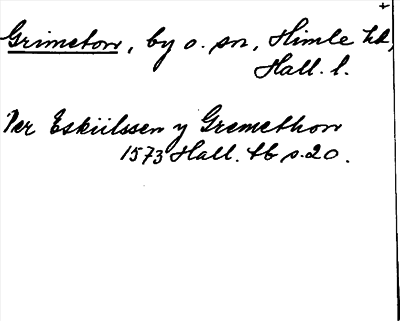 +
Grimeton, by o. sn, Himle hd,
Hall. l.
Per Eskiilssen y Gremethon
1573 Hall. tb s. 20.